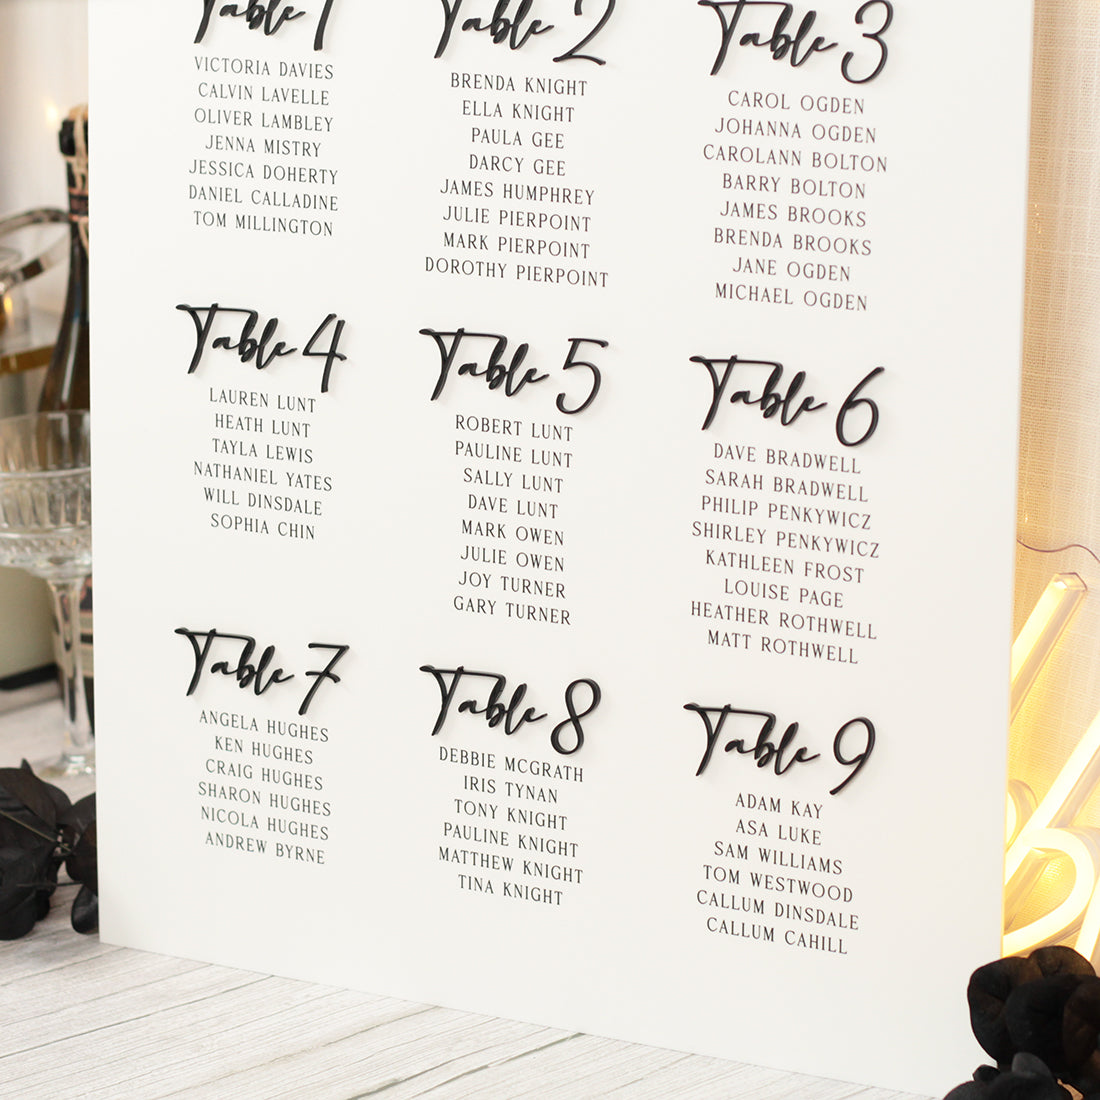 Table 1
VICTORIA DAVIES
CALVIN LAVELLE
OLIVER LAMBLEY
JENNA MISTRY
JESSICA DOHERTY
DANIEL CALLADINE
TOM MILLINGTON
Table 2
BRENDA KNIGHT
ELLA KNIGHT
PAULA GEE
DARCY GEE
JAMES HUMPHREY
JULIE PIERPOINT
MARK PIERPOINT
DOROTHY PIERPOINT
Table 3
CAROL OGDEN
JOHANNA OGDEN
CAROLANN BOLTON
BARRY BOLTON
JAMES BROOKS
BRENDA BROOKS
JANE OGDEN
MICHAEL OGDEN
Table 4
LAUREN LUNT
HEATH LUNT
TAYLA LEWIS
NATHANIEL YATES
WILL DINSDALE
SOPHIA CHIN
Table 5
ROBERT LUNT
PAULINE LUNT
SALLY LUNT
DAVE LUNT
MARK OWEN
JULIE OWEN
JOY TURNER
GARY TURNER
Table 6
DAVE BRADWELL
SARAH BRADWELL
PHILIP PENKYWICZ
SHIRLEY PENKYWICZ
KATHLEEN FROST
LOUISE PAGE
HEATHER ROTHWELL
MATT ROTHWELL
Table 7
ANGELA HUGHES
KEN HUGHES
CRAIG HUGHES
SHARON HUGHES
NICOLA HUGHES
ANDREW BYRNE
Table 8
DEBBIE MCGRATH
IRIS TYNAN
TONY KNIGHT
PAULINE KNIGHT
MATTHEW KNIGHT
TINA KNIGHT
Table 9
ADAM KAY
ASA LUKE
SAM WILLIAMS
TOM WESTWOOD
CALLUM DINSDALE
CALLUM CAHILL